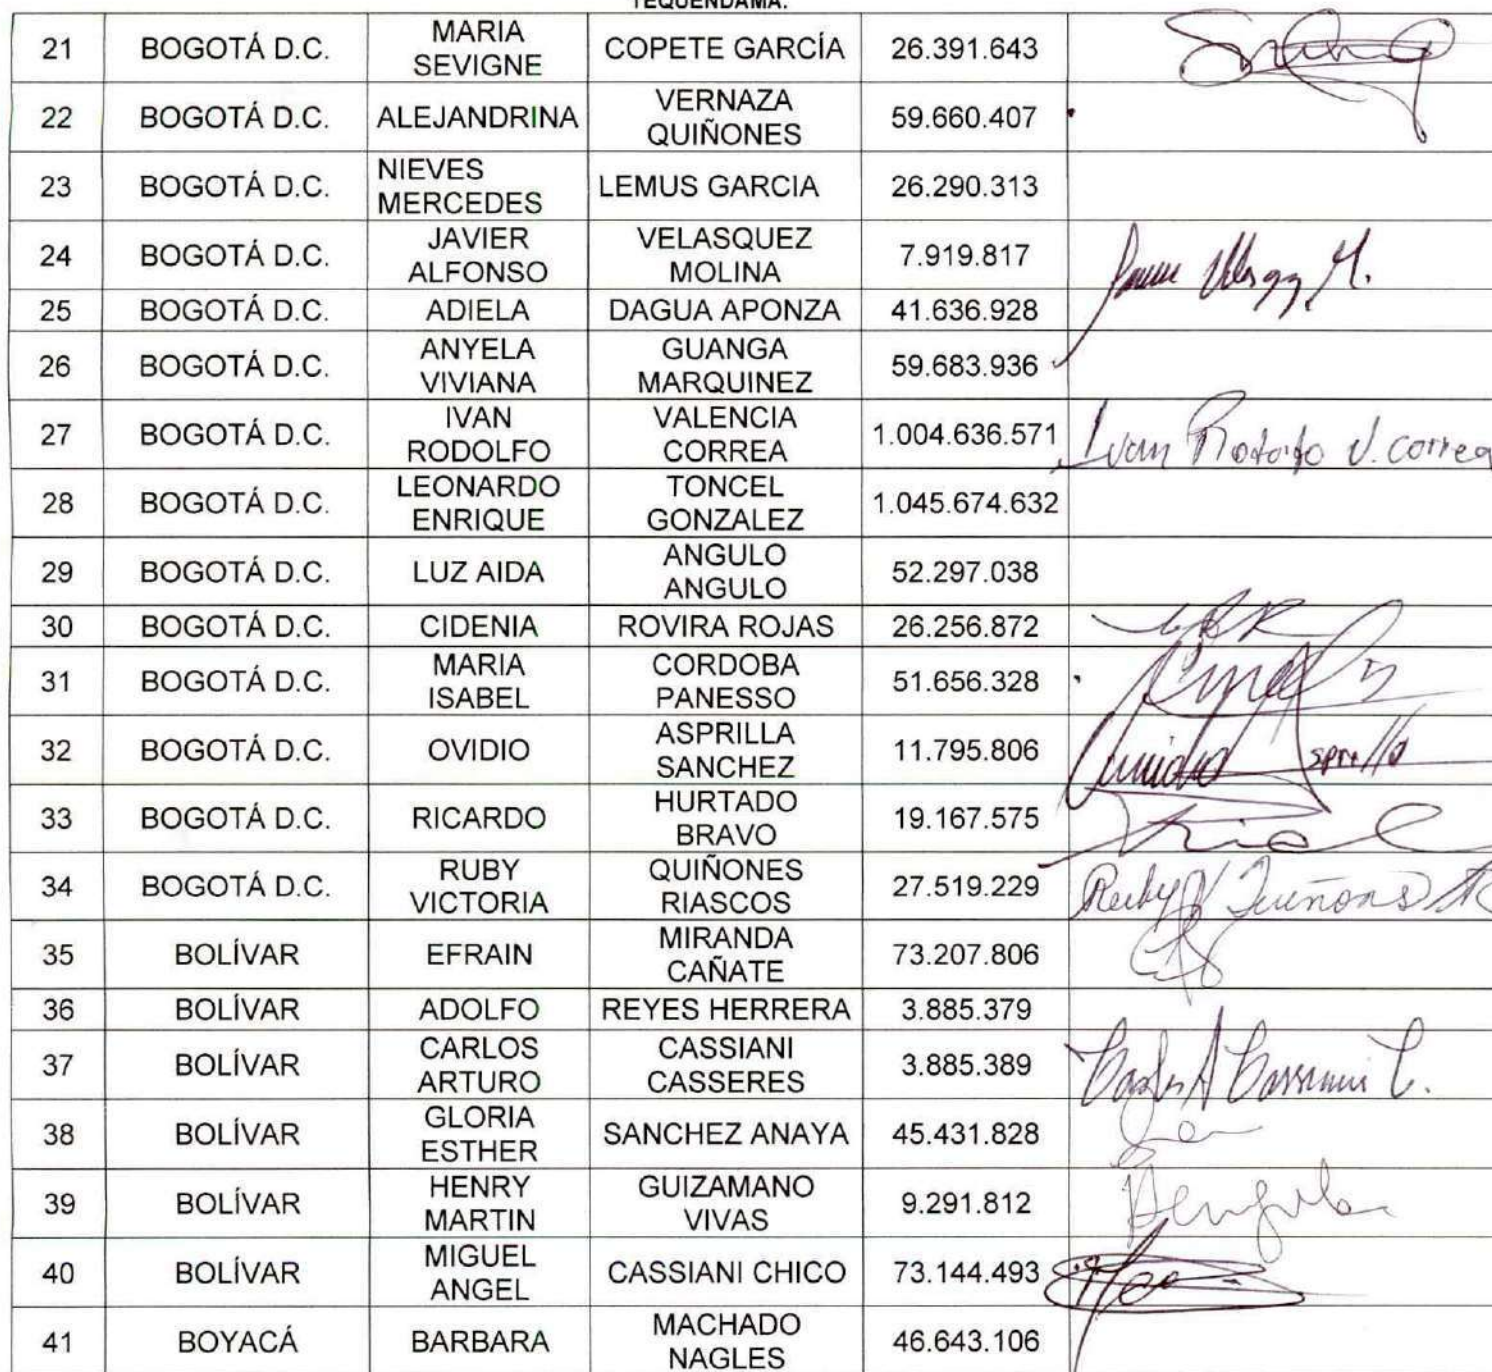 TEQUENDAMA.
21 BOGOTÁ D.C. MARIA SEVIGNE COPETE GARCÍA 26.391.643
22 BOGOTÁ D.C. ALEJANDRINA VERNAZA QUIÑONES 59.660.407
23 BOGOTÁ D.C. NIEVES MERCEDES LEMUS GARCIA 26.290.313
24 BOGOTÁ D.C. JAVIER ALFONSO VELASQUEZ MOLINA 7.919.817
25 BOGOTÁ D.C. ADIELA DAGUA APONZA 41.636.928
26 BOGOTÁ D.C. ANYELA VIVIANA GUANGA MARQUINEZ 59.683.936
27 BOGOTÁ D.C. IVAN RODOLFO VALENCIA CORREA 1.004.636.571 Ivan Rodolfo V. Correa
28 BOGOTÁ D.C. LEONARDO ENRIQUE TONCEL GONZALEZ 1.045.674.632
29 BOGOTÁ D.C. LUZ AIDA ANGULO ANGULO 52.297.038
30 BOGOTÁ D.C. CIDENIA ROVIRA ROJAS 26.256.872
31 BOGOTÁ D.C. MARIA ISABEL CORDOBA PANESSO 51.656.328
32 BOGOTÁ D.C. OVIDIO ASPRILLA SANCHEZ 11.795.806
33 BOGOTÁ D.C. RICARDO HURTADO BRAVO 19.167.575
34 BOGOTÁ D.C. RUBY VICTORIA QUIÑONES RIASCOS 27.519.229 Ruby V Quiñones R
35 BOLÍVAR EFRAIN MIRANDA CAÑATE 73.207.806
36 BOLÍVAR ADOLFO REYES HERRERA 3.885.379
37 BOLÍVAR CARLOS ARTURO CASSIANI CASSERES 3.885.389 Carlos A Cassiani C.
38 BOLÍVAR GLORIA ESTHER SANCHEZ ANAYA 45.431.828
39 BOLÍVAR HENRY MARTIN GUIZAMANO VIVAS 9.291.812
40 BOLÍVAR MIGUEL ANGEL CASSIANI CHICO 73.144.493
41 BOYACÁ BARBARA MACHADO NAGLES 46.643.106